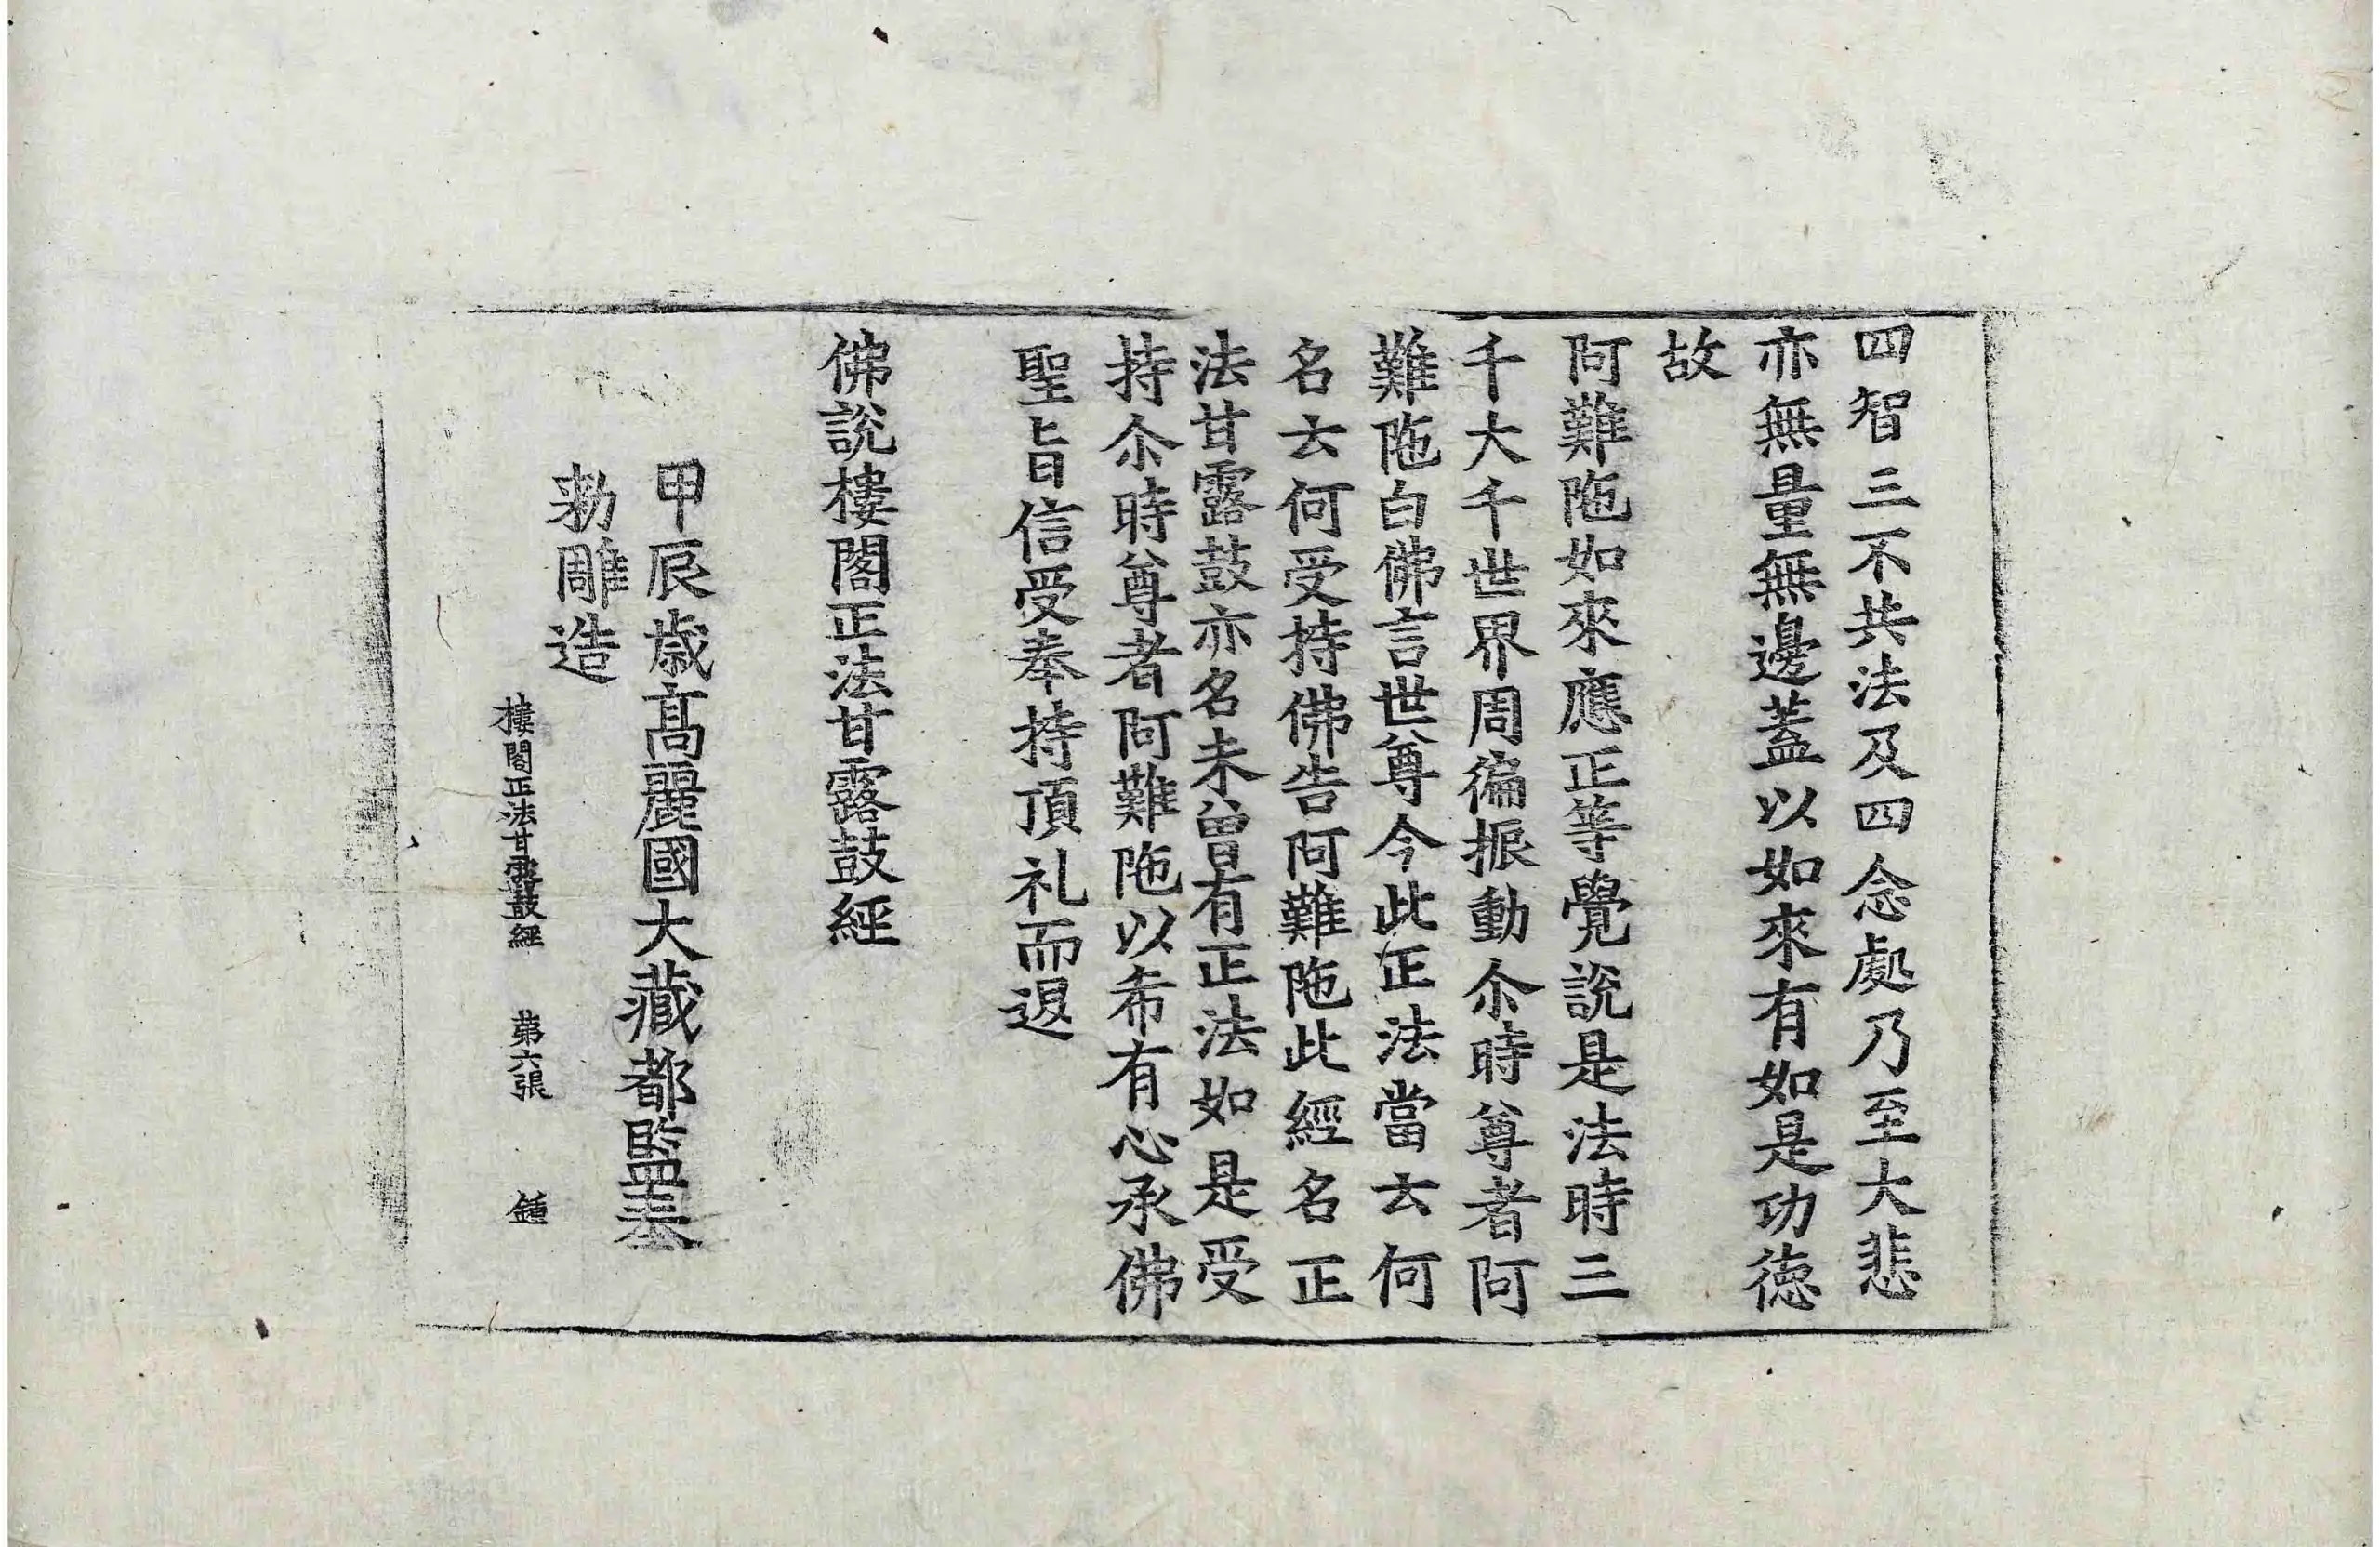 四智三不共法及四念處乃至大悲
亦無量無邊蓋以如來有如是功德
故
阿難陁如來應正等覺說是法時三
千大千世界周徧振動尒時尊者阿
難陁白佛言世尊今此正法當云何
名云何受持佛告阿難陁此經名正
法甘露鼓亦名未曾有正法如是受
持尒時尊者阿難陁以希有心承佛
聖旨信受奉持頂礼而退
佛說樓閣正法甘露鼓經
甲辰歲高麗國大藏都監奉
勑雕造
樓閣正法甘露鼓經 第六張 鍾